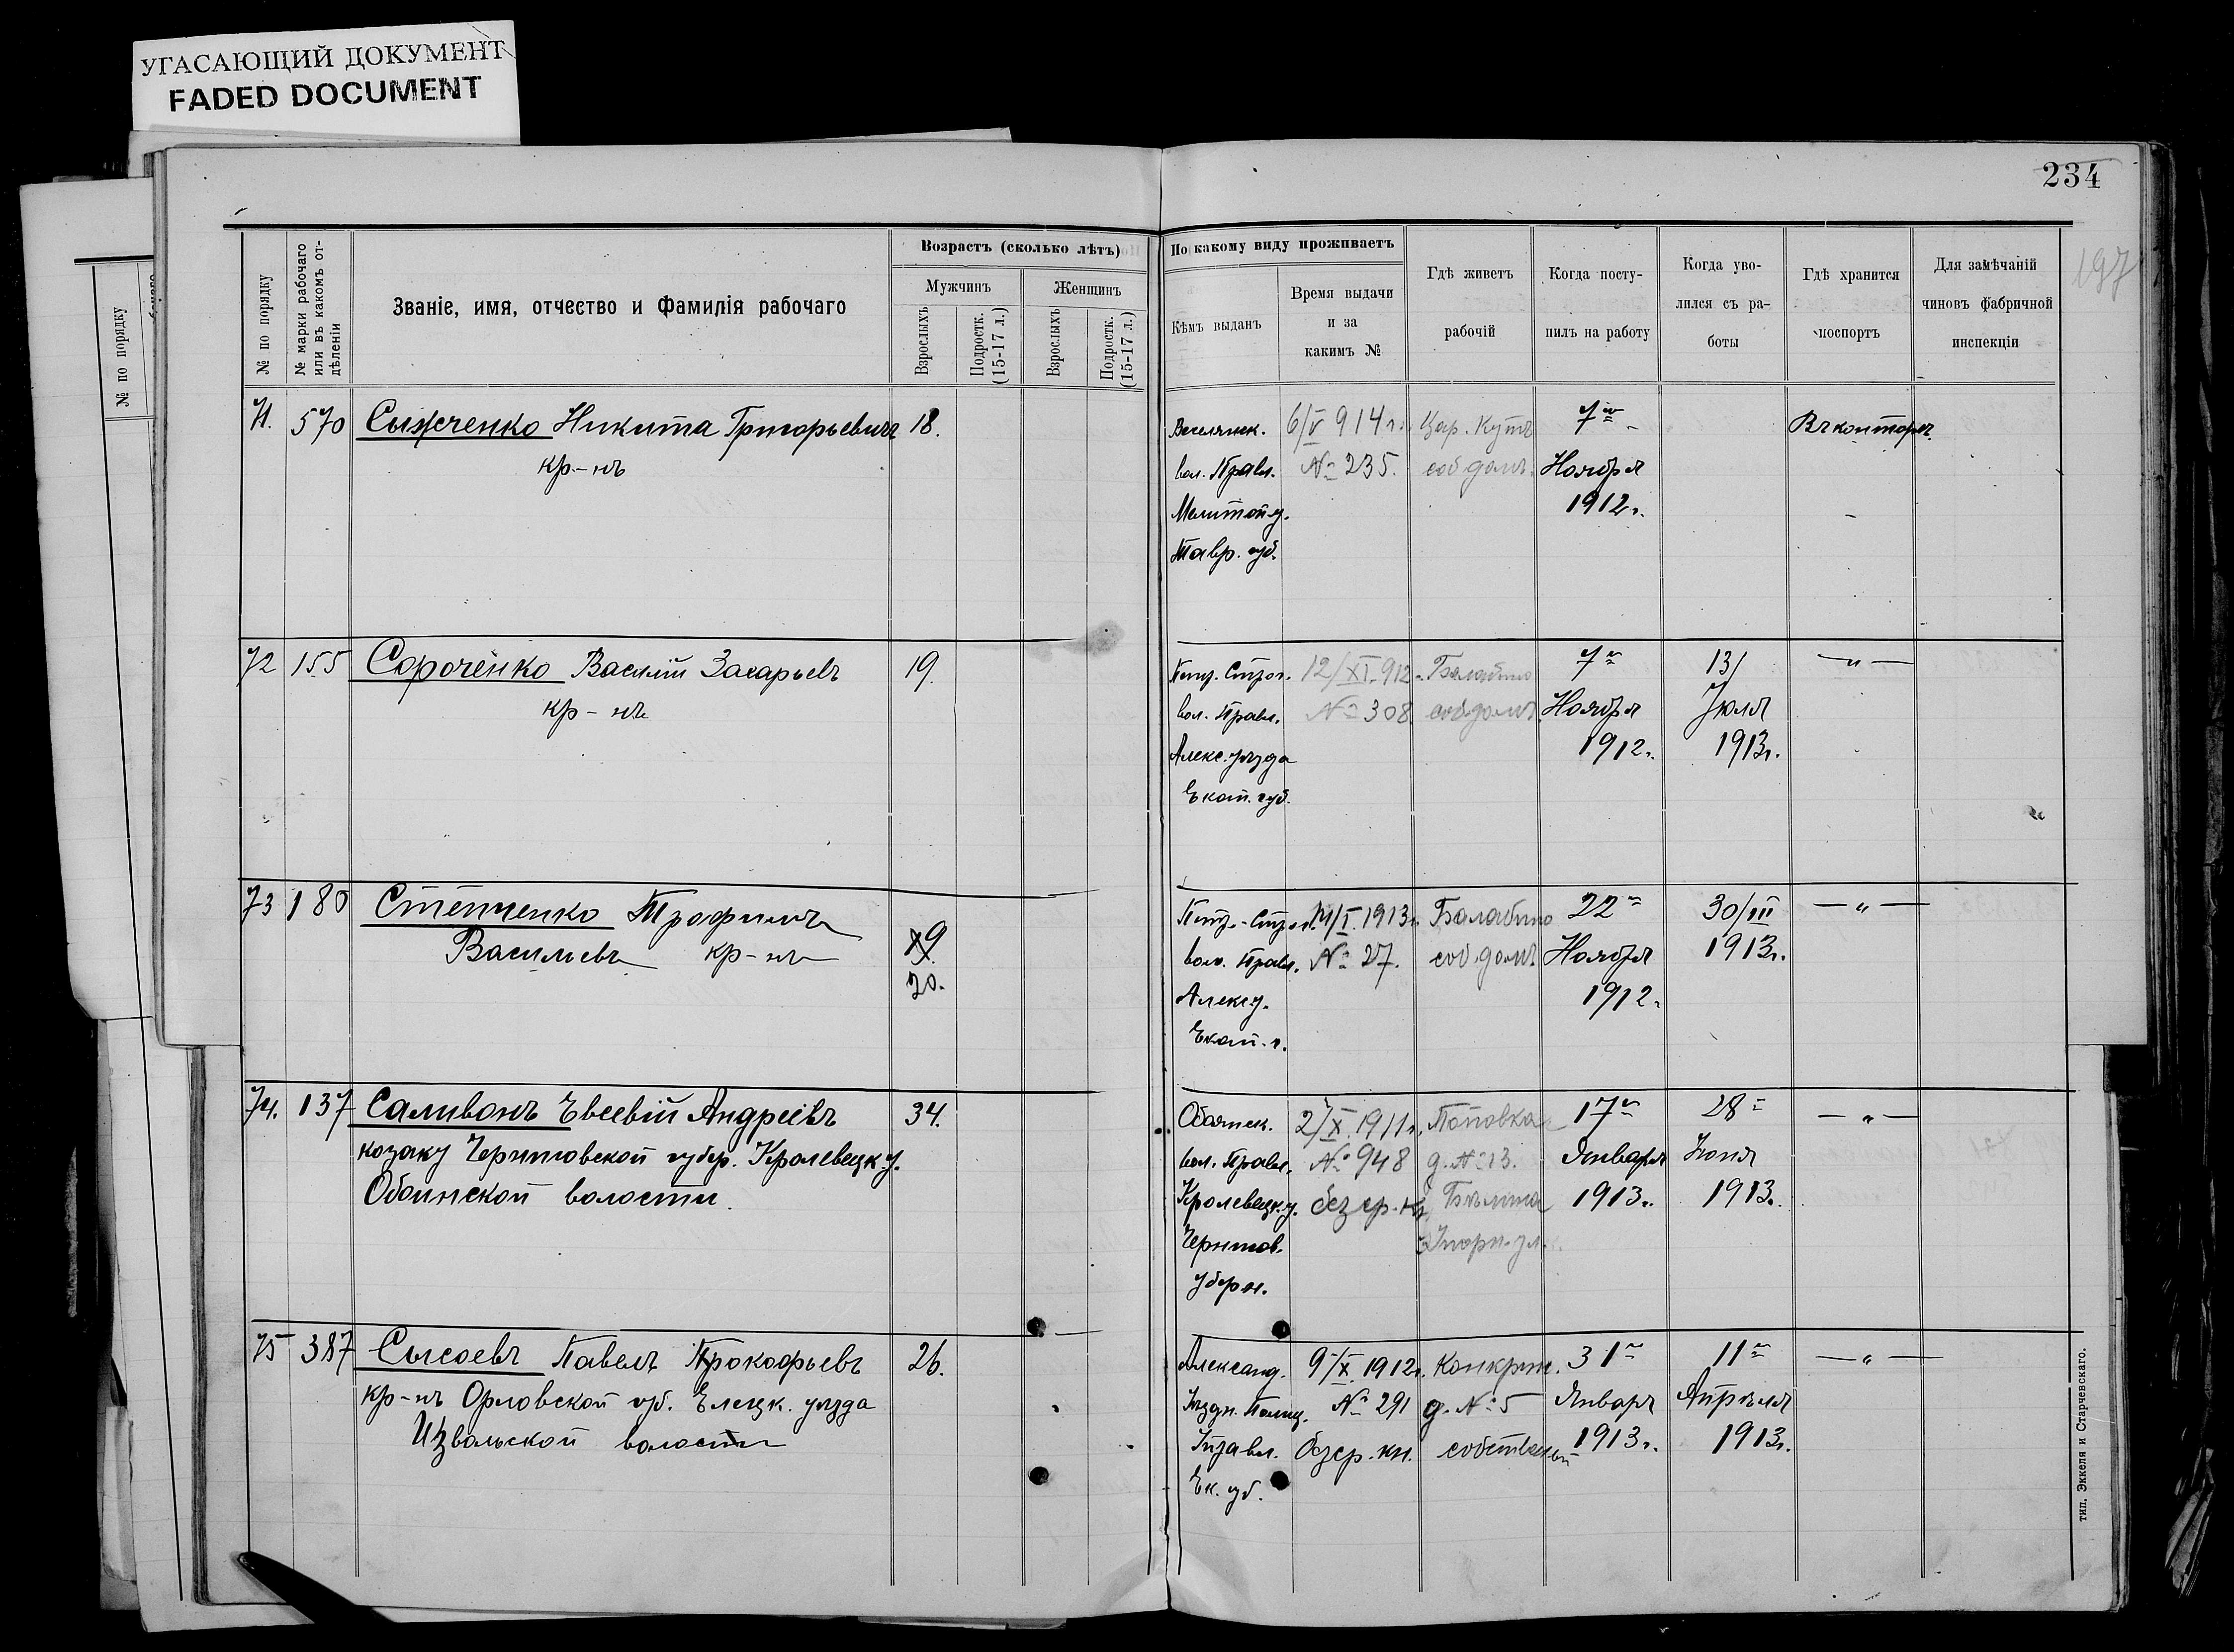 УГАСАЮЩИЙ ДОКУМЕНТ
FADED DOCUMENT
234
197
№ по порядку
№ по порядку
№ марки рабочаго или въ какомъ отдѣленіи
Званіе, имя, отчество и Фамилія рабочаго
Возрастъ (сколько лѣтъ)
Мужчинъ
Женщинъ
Взрослыхъ
Подростк. (15-17 л.)
Взрослыхъ
Подростк. (15-17 л.)
По какому виду проживаетъ
Кѣмъ выданъ
Время выдачи
и за
какимъ №
Гдѣ живетъ
рабочій
Когда посту-
пилъ на работу
Когда уво-
лился съ ра-
боты
Гдѣ хранится
поспортъ
Для замѣчаній
чиновъ фабричной
инспекціи
71. 570 Никита Григорьевичъ 18.
кр-нъ
Веселянск. 6/V 914 г. Цар. Кутъ 7го Въ конторѣ
вол. Правл. № 235. соб. домъ. Ноября
Мелитоп. у. 1912 г.
Тавр. губ.
72 155 Сороченко Василій Захарьевъ 19.
кр-нъ
12/XI-912 Балабино 7го 13/ —"—
вол. Правл. № 308 соб. домъ Ноября Іюля
Алекс. уѣзда 1912 г. 1913 г.
Екат. губ.
73 180 Степченко Трофимъ
Васильевъ кр-нъ 19
20.
1913 г. Балабино 22го 30/III —"—
вол. Правл. № 27. соб. домъ Ноября 1913 г.
Алекс. у. 1912 г.
Екат. г.
74. 137 Саливонъ Евсевій Андреевъ 34.
козаку Черниговской губер. Кролевецк. у.
Обтинской волости.
X. 1911 г. Поповка 17го 28го —"—
вол. Правл. № 948 д. № 13. Января Іюня
Кролевецк. у. безср. кн. 1913 г. 1913 г.
Чернигов.
губерн.
75 387 Сысоевъ Павелъ Прокофьевъ 26.
кр-нъ Орловской губ. Елецк. уѣзда
Извальской волости
Александ. 9/X. 1912 г. 31го 11го —"—
Уѣздн. Полиц. № 291 д. № 5 Января Апрѣля
Управл. безср. кн. собственый 1913 г. 1913 г.
Ек. губ.
тип. Эккеля и Старчевскаго.